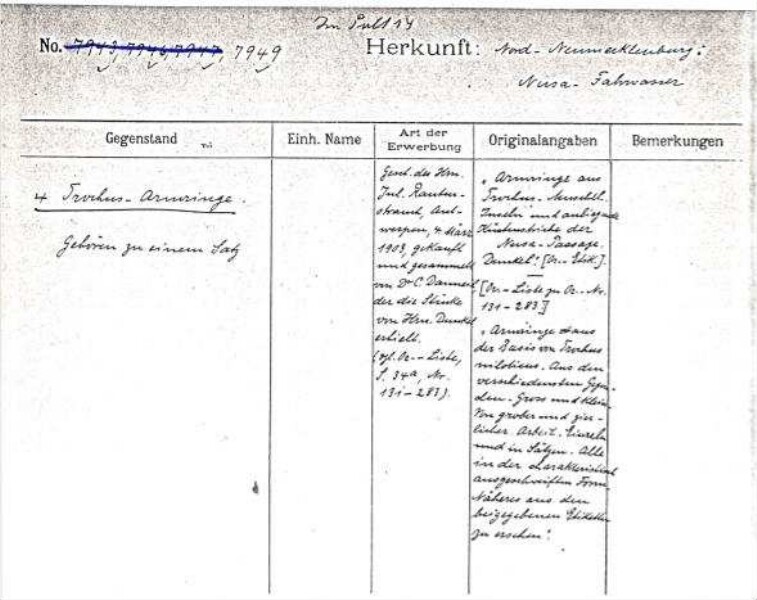 Im Pult 14
No. 7943, 7946, 7947, 7949
Herkunft: Nord-Neumecklenburg:
Nusa-Fahrwasser
Gegenstand
Einh. Name
Art der
Erwerbung
Originalangaben
Bemerkungen
4 Trochus-Armringe.
Gehören zu einem Satz
Gesch. des Hrn.
Jul. Rauten-
strauch, Ant-
werpen, 4. März
1903, gekauft
und gesammelt
von Dr C. Danneil
der die Stücke
von Hrn. Dunkel
erhielt.
(vgl. Or.-Liste,
S. 34a, Nr.
131-283).
„Armringe aus
Trochus-Muschel.
Inseln und anliegende
Küstenstriche der
Nusa-Passage.
Dunkel". [Or.-Etik.].
[Or.-Liste zu Or.-Nr.
131-283]
„Armringe aus
der Basis von Trochus
niloticus. Aus den
verschiedensten Gegen-
den. Gross und klein.
Von grober und zier-
licher Arbeit. Einzeln
und in Sätzen. Alle
in der charakteristisch
ausgeschweiften Form.
Näheres aus den
beigegebenen Etiketten
zu ersehen".